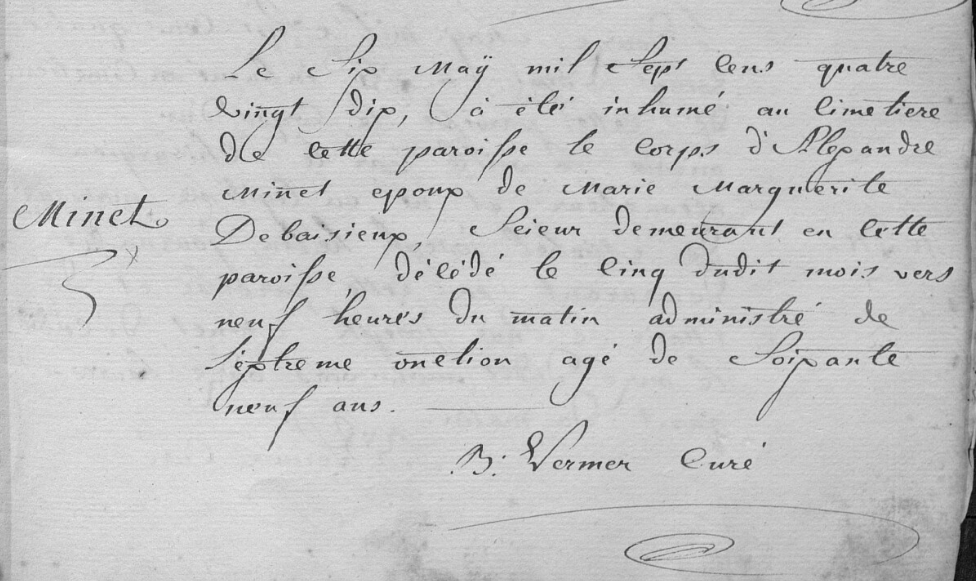 Le Six Maÿ mil Sept Cens quatre
vingt dix, à été inhumé au Cimetiere
de Cette paroisse le Corps d'Alexandre
Minet epoux de Marie Marguerite
Minet
Debaisieux, Scieur demeurant en Cette
paroisse, décédé le Cinq dudit mois vers
neuf heures du matin administré de
l'éxtreme onction agé de Soixante
neuf ans.
B: Vermer Curé